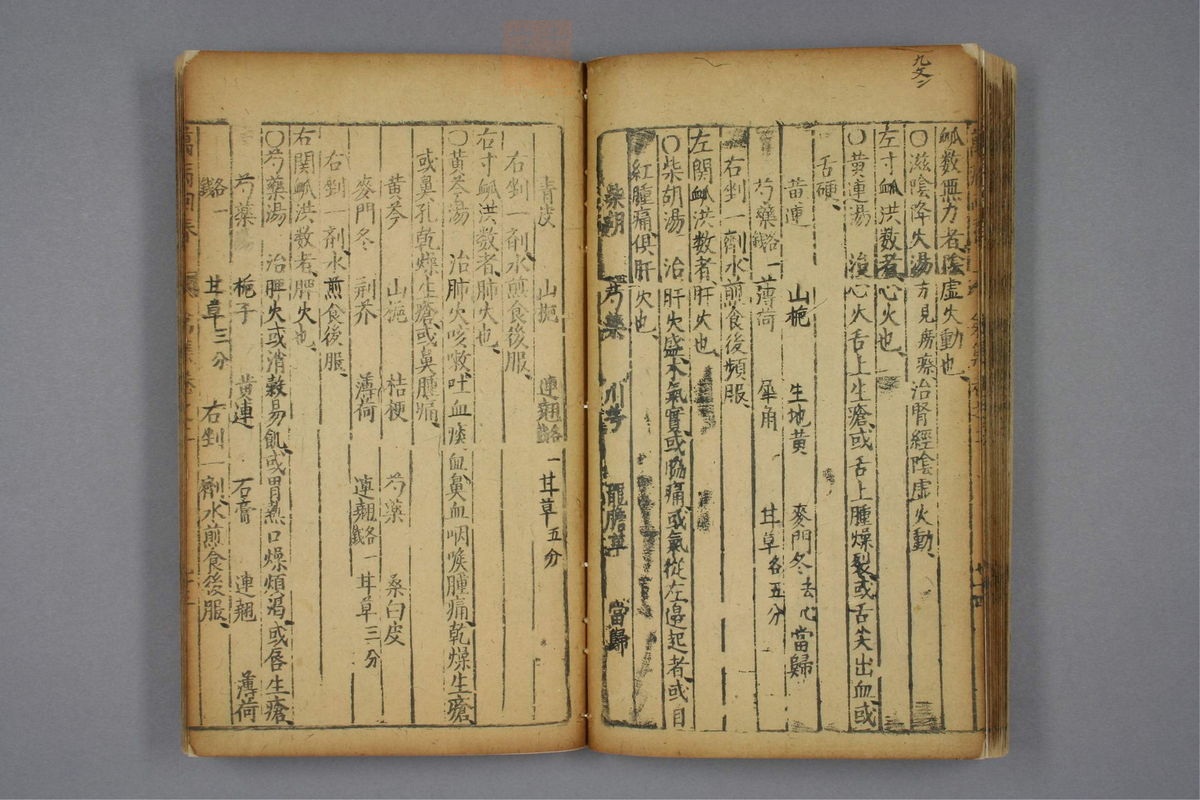 脉数無力者陰虛火動也
〇滋陰降火湯方見癆瘵治腎經陰虛火動
左寸脉洪数者心火也
〇黄連湯 治心火舌上生瘡或舌上腫燥裂或舌尖出血或
舌硬
黄連 山梔 生地黄 麥門冬去心 當歸
芍藥各一錢 薄荷 犀角 甘草各五分
右剉一劑水煎食後頻服
左関脉洪数者肝火也
〇柴胡湯 治肝火盛木氣實或脇痛或氣從左邉起者或目
紅腫痛俱肝火也
柴胡 芍藥 川芎 龍膽草 當歸
青皮 山梔 連翹各一錢 甘草五分
右剉一剤水煎食後服
右寸脉洪数者肺火也
〇黄芩湯 治肺火咳嗽吐血痰血鼻血咽喉腫痛乾燥生瘡
或鼻孔乾燥生瘡或鼻腫痛
黄芩 山梔 桔梗 芍藥 桑白皮
麥門冬 荆芥 薄荷 連翹各一錢 甘草三分
右剉一剤水煎食後服
右関脉洪数者脾火也
〇芍藥湯 治脾火或消榖易飢或胃熱口燥煩渴或唇生瘡
芍藥 梔子 黄連 石膏 連翹 薄荷
各一錢 甘草三分 右剉一劑水煎食後服
萬病回春